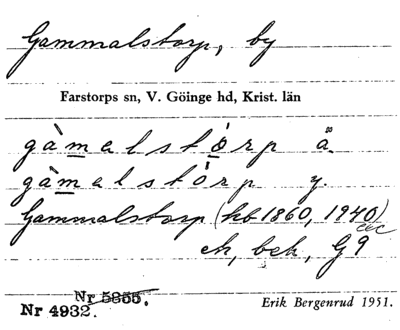 Gammalstorp, by
Farstorps sn, V. Göinge hd, Krist. län
gàmalstórp ä.
gàmalstórp y.
Gammalstorp (kb 1860, 1940)
eck, bek, G9
Nr 5855.
Nr 4932.
Erik Bergenrud 1951.